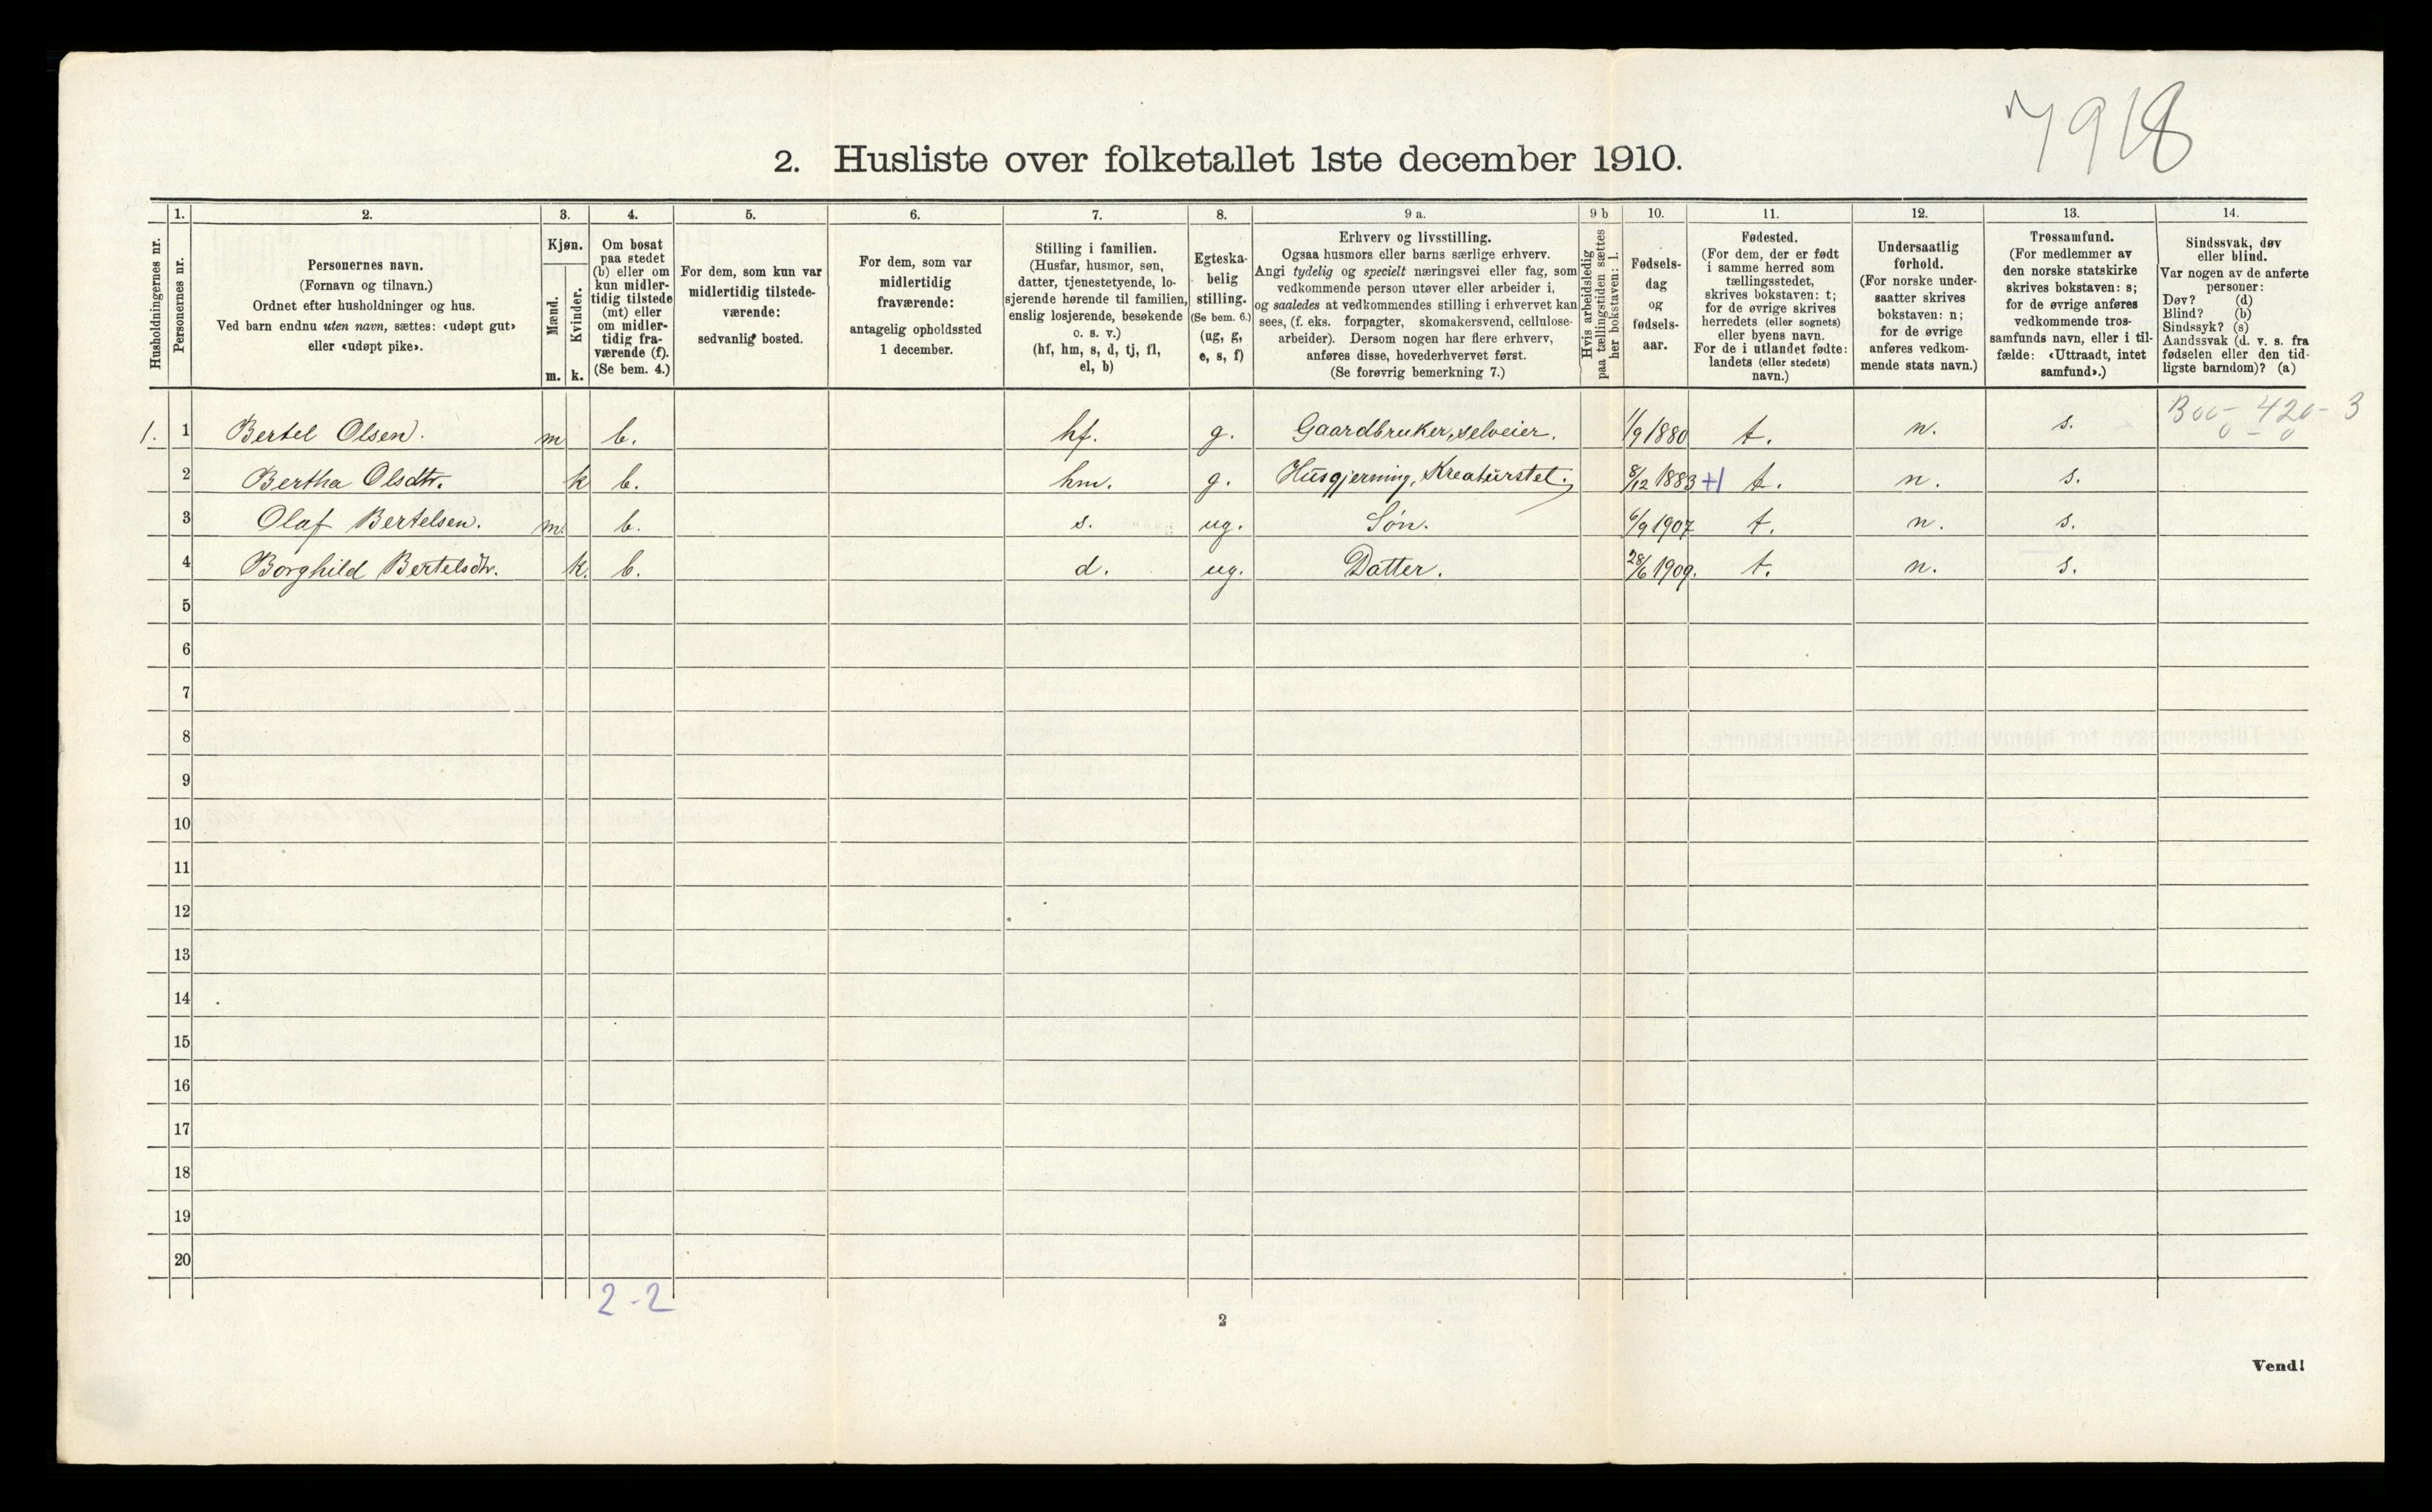 7918
2. Husliste over folketallet 1ste december 1910.
Husholdningernes nr.
1. Personernes nr.
2. Personernes navn.
(Fornavn og tilnavn.)
Ordnet efter husholdninger og hus.
Ved barn endnu uten navn, sættes: «udøpt gut»
eller «udøpt pike».
3. Kjøn.
Mænd. m.
Kvinder. k.
4. Om bosat
paa stedet
(b) eller om
kun midler-
tidig tilstede
(mt) eller
om midler-
tidig fra-
værende (f).
(Se bem. 4.)
5. For dem, som kun var
midlertidig tilstede-
værende:
sedvanlig bosted.
6. For dem, som var
midlertidig
fraværende:
antagelig opholdssted
1 december.
7. Stilling i familien.
(Husfar, husmor, søn,
datter, tjenestetyende, lo-
sjerende hørende til familien,
enslig losjerende, besøkende
o. s. v.)
(hf, hm, s, d, tj, fl,
el, b)
8. Egteska-
belig
stilling.
(Se bem. 6.)
(ug, g,
e, s, f)
9 a. Erhverv og livsstilling.
Ogsaa husmors eller barns særlige erhverv.
Angi tydelig og specielt næringsvei eller fag, som
vedkommende person utøver eller arbeider i,
og saaledes at vedkommendes stilling i erhvervet kan
sees, (f. eks. forpagter, skomakersvend, cellulose-
arbeider). Dersom nogen har flere erhverv,
anføres disse, hovederhvervet først.
(Se forøvrig bemerkning 7.)
9 b Hvis arbeidsledig
paa tællingstiden sættes
her bokstaven: l.
10. Fødsels-
dag
og
fødsels-
aar.
11. Fødested.
(For dem, der er født
i samme herred som
tællingsstedet,
skrives bokstaven: t;
for de øvrige skrives
herredets (eller sognets)
eller byens navn.
For de i utlandet fødte:
landets (eller stedets)
navn.)
12. Undersaatlig
forhold.
(For norske under-
saatter skrives
bokstaven: n;
for de øvrige
anføres vedkom-
mende stats navn.)
13. Trossamfund.
(For medlemmer av
den norske statskirke
skrives bokstaven: s;
for de øvrige anføres
vedkommende tros-
samfunds navn, eller i til-
fælde: «Uttraadt, intet
samfund».)
14. Sindssvak, døv
eller blind.
Var nogen av de anførte
personer:
Døv? (d)
Blind? (b)
Sindssyk? (s)
Aandssvak (d. v. s. fra
fødselen eller den tid-
ligste barndom)? (a)
1. 1 Bertel Olsen. m b. hf. g. Gaardbruker, selveier. 1/9 1880 t. n. s. B00 - 420 - 3
0 - 0
2 Bertha Olsdtr. k b. hm. g. Husgjerning, Kreaturstel. 8/12 1883 +1 t. n. s.
3 Olaf Bertelsen. m. b. s. ug. Søn. 6/9 1907 t. n. s.
4 Borghild Bertelsdtr. k. b. d. ug. Datter. 28/6 1909. t. n. s.
5
6
7
8
9
10
11
12
13
14
15
16
17
18
19
20
2 - 2
2
Vend!